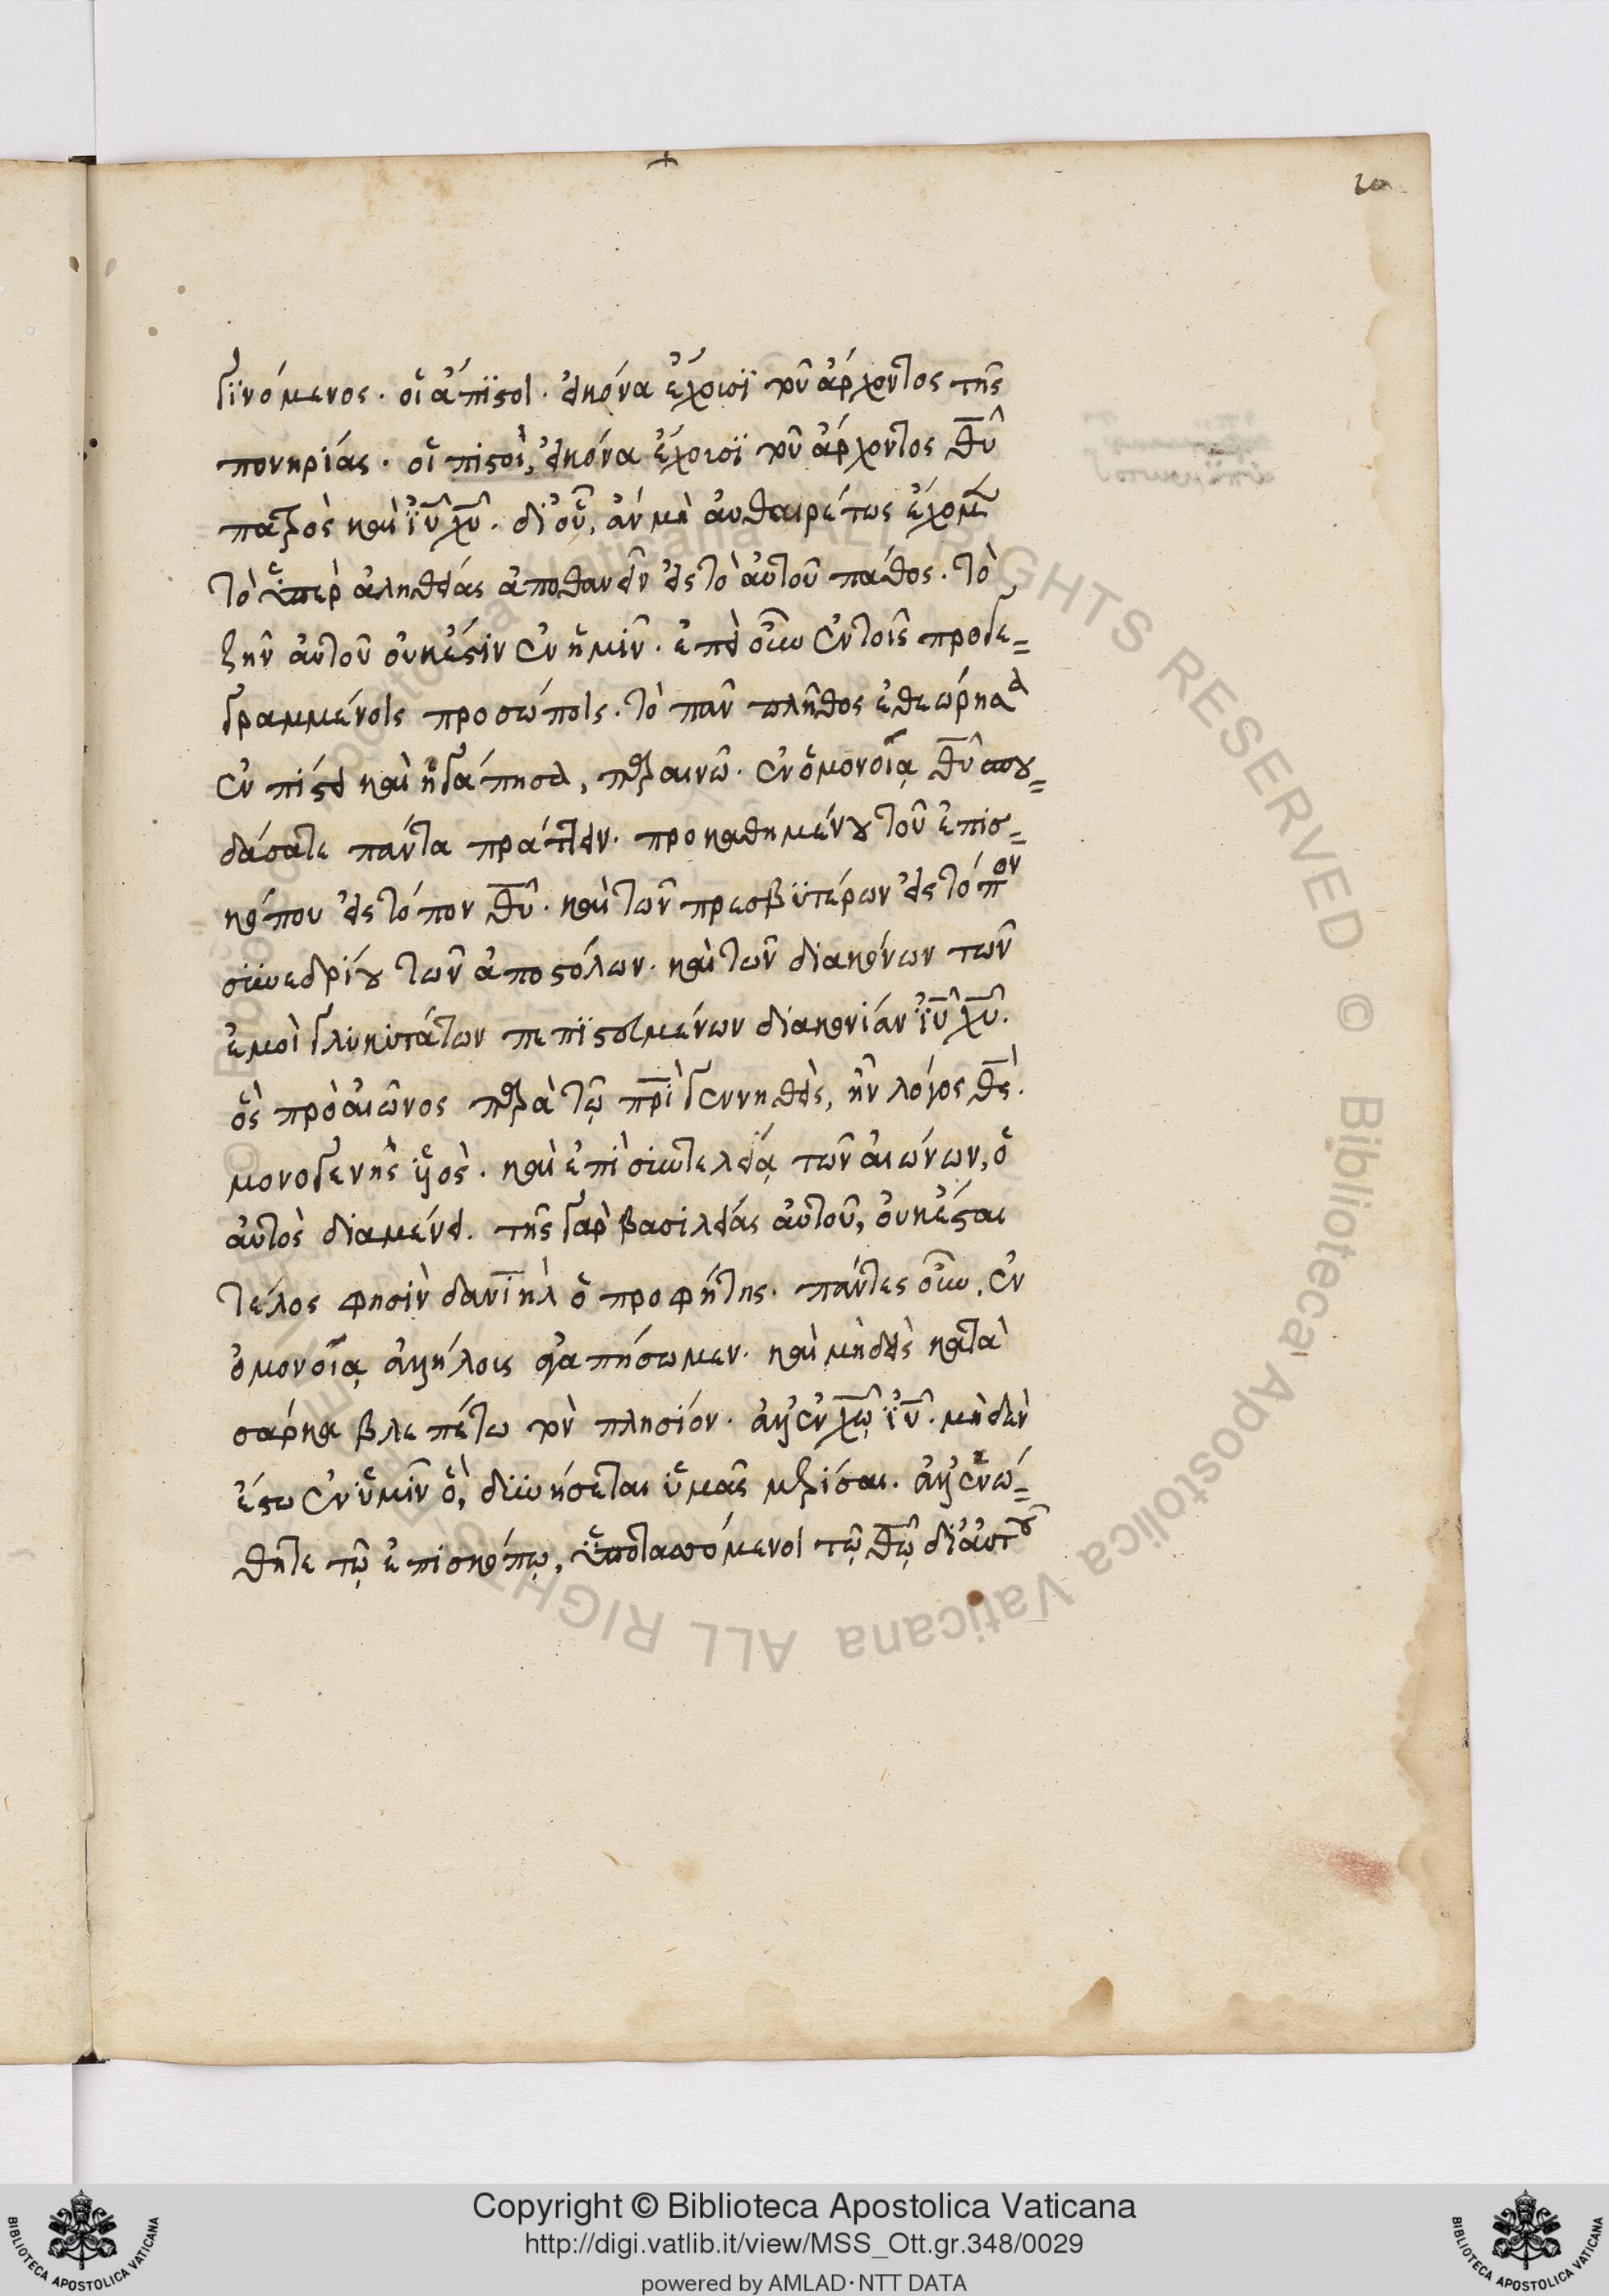 γινόμενος. οἱ ἄπϊστοι. εἰκόνα ἔχουσϊ τοῦ ἄρχοντος τῆς
πονηρίας. οἱ πιστοὶ, εἰκόνα ἔχουσϊ τοῦ ἄρχοντος θ̅υ̅
πατρὸς καὶ ἰ̅υ̅ χ̅υ̅. δι' οὗ, ἂν μὴ αὐθαιρέτως ἔχομεν
τὸ ὑπὲρ ἀληθείας ἀποθανεῖν εἰς τὸ αὐτοῦ πάθος. τὸ
ζῆν αὐτοῦ οὐκ ἔστιν ἐν ἡμῖν. ἐπεὶ οὖν ἐν τοῖς προγε=
γραμμένοις προσώποις. τὸ πᾶν πλῆθος ἐθεώρησα
ἐν πίστει καὶ ἠγάπησα, παραινῶ. ἐν ὁμονοίᾳ θ̅υ̅ σπου=
δάσατε πάντα πράττειν. προκαθημένου τοῦ ἐπισ=
κόπου εἰς τόπον θ̅υ̅. καὶ τῶν πρεσβϋτέρων εἰς τόπον
συνεδρίου τῶν ἀποστόλων. καὶ τῶν διακόνων τῶν
ἐμοὶ γλυκυτάτων πεπϊστευμένων διακονίαν ἰ̅υ̅ χ̅υ̅.
ὃς πρὸ αἰῶνος παρὰ τῷ π̅ρ̅ὶ γεννηθεὶς, ἦν λόγος θ̅ς̅.
μονογενὴς ὑἱὸς. καὶ ἐπὶ συντελείᾳ τῶν αἰώνων, ὁ
αὐτὸς διαμένει. τῆς γὰρ βασιλείας αὐτοῦ, οὐκ ἔσται
τέλος φησὶν δανϊὴλ ὁ προφήτης. πάντες οὖν, ἐν
ὁμονοίᾳ ἀλλήλους ἀγαπήσωμεν. καὶ μηδεὶς κατὰ
σάρκα βλεπέτω τὸν πλησίον. ἀλλ' ἐν χ̅ω̅ ἰ̅υ̅. μηδὲν
ἔστω ἐν ὑμῖν ὃ, δυνήσεται ὑμᾶς μερίσαι. ἀλλ' ἑνώ=
θητε τῷ ἐπισκόπῳ, ὑποτασσόμενοι τῷ θ̅ω̅ δι' αὐτοῦ
Copyright © Biblioteca Apostolica Vaticana
http://digi.vatlib.it/view/MSS_Ott.gr.348/0029
powered by AMLAD·NTT DATA